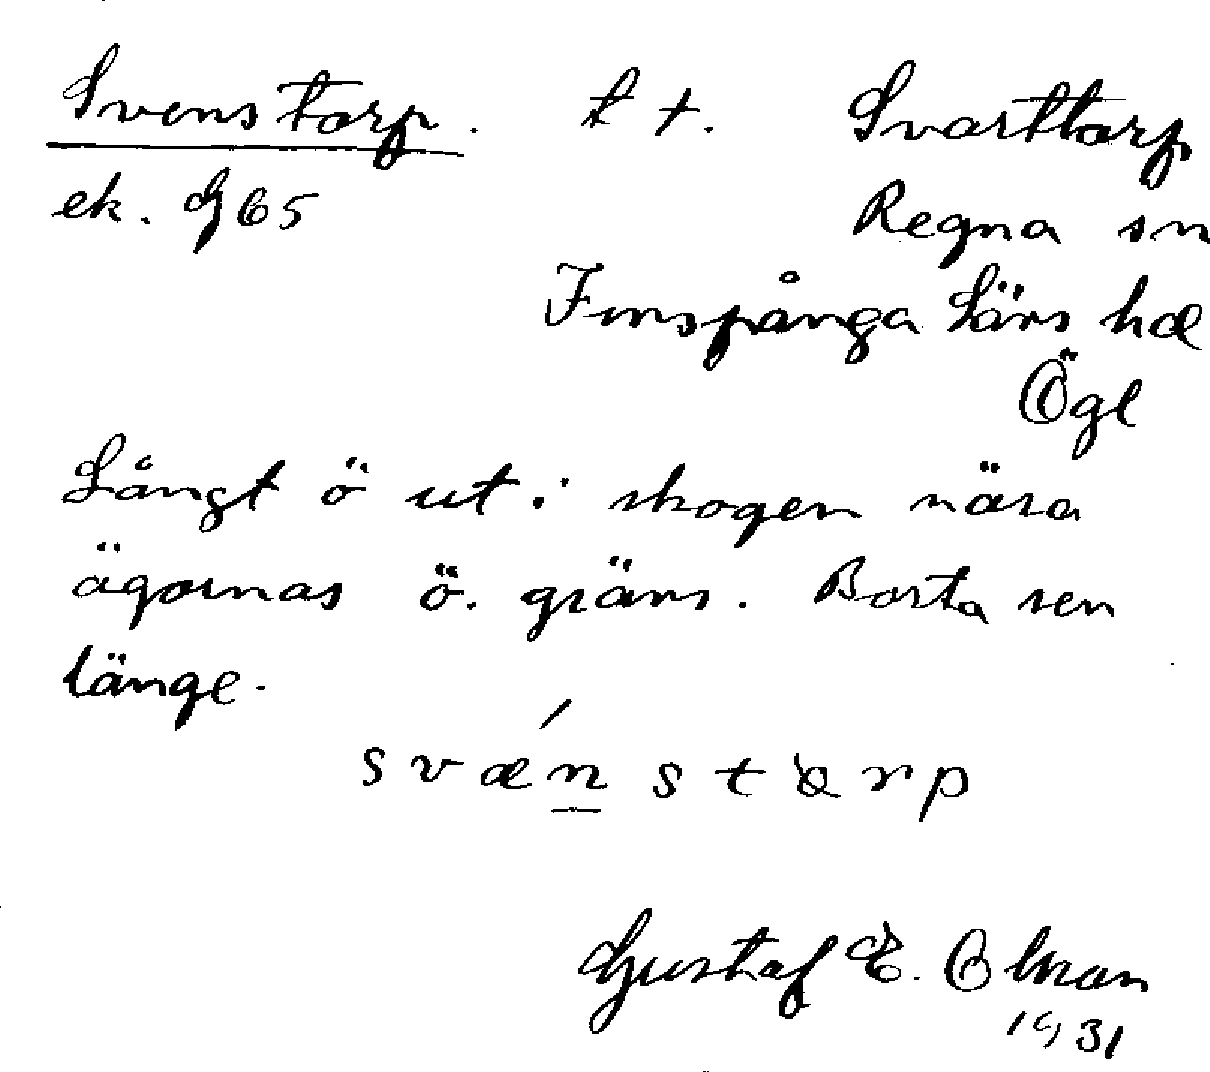 Svenstorp. t t. Svarttorp,
ek. G65 Regna sn
Finspånga Lärs hd
Ögl
Långt ö ut i skogen nära
ägornas ö. gräns. Borta sen
länge.
svænstɑrp
Gustaf E.
1931